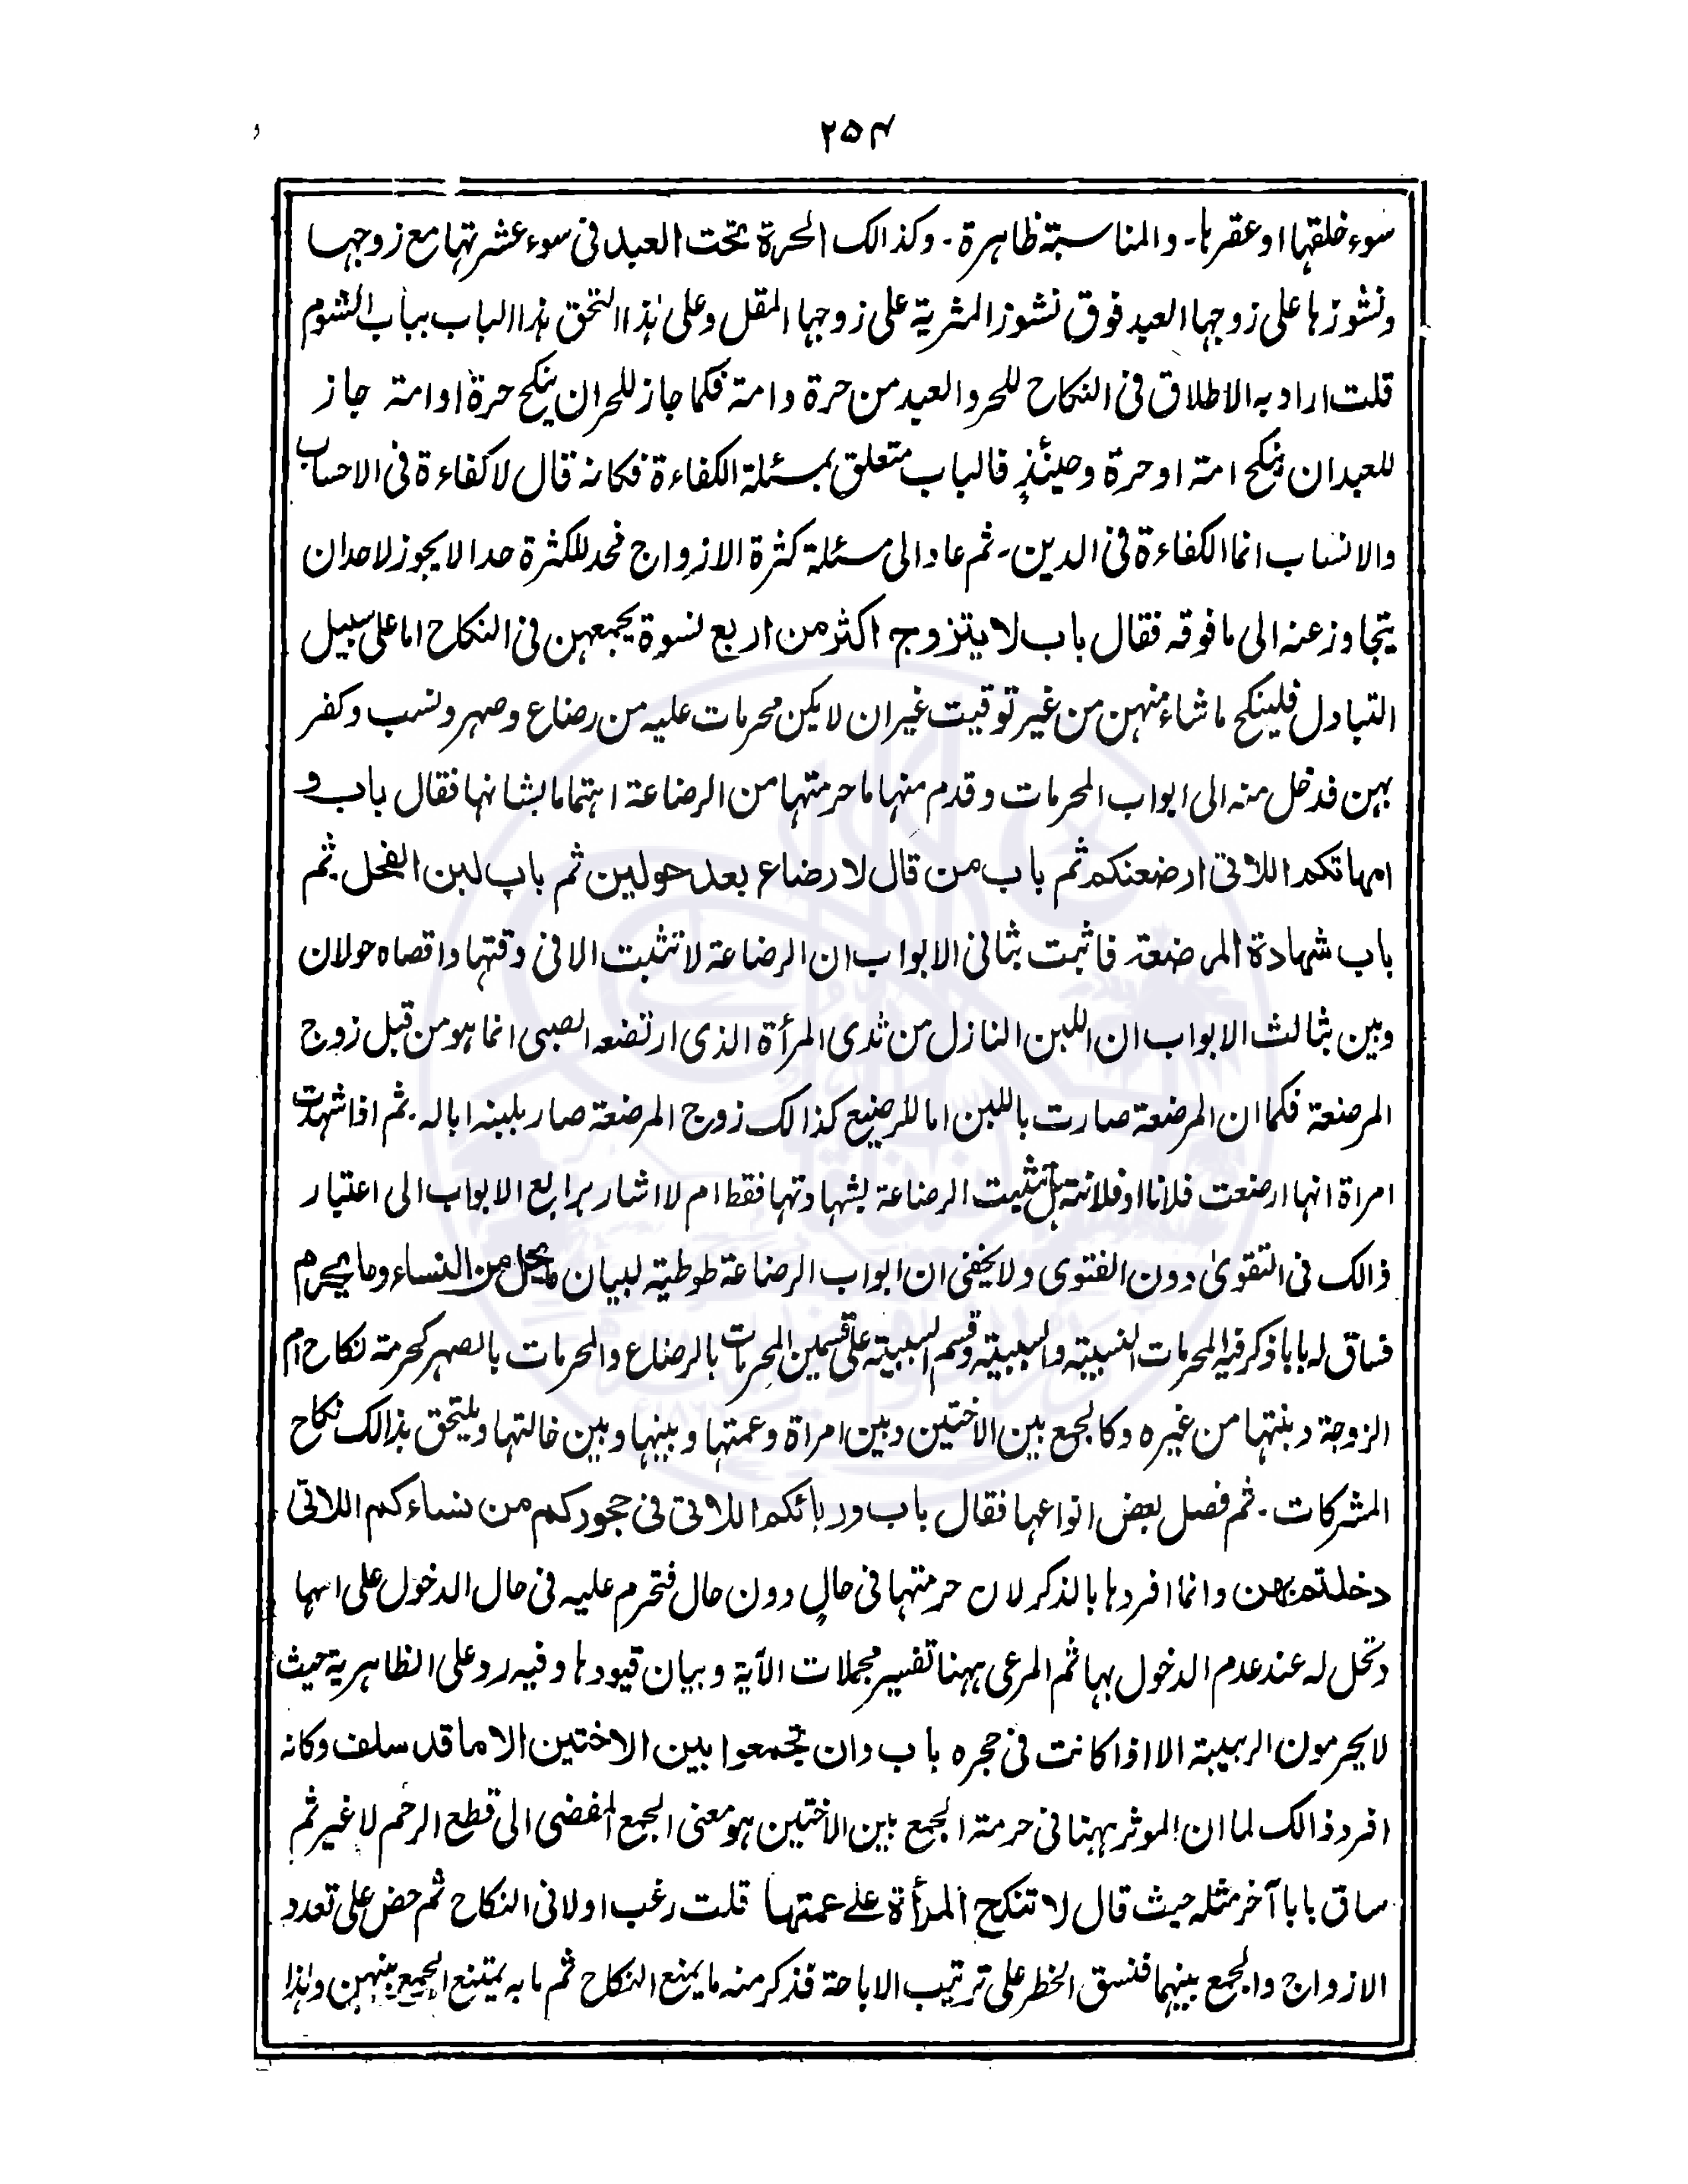 ۲۵۴
سوء خلقہا او عقرہا۔ والمناسبتہ ظاہرة۔ وکذالک الحرة تحت العبد فی سوء عشرتہا مع زوجہا
ونشوزہا علی زوجہا العبد فوق نشوز المثریة علی زوجہا المقل وعلی ہذا التحق ہذا الباب بباب الشوم
قلت اراد بہ الاطلاق فی النکاح للحر والعبد من حرة وامة فکما جاز للحران ینکح حرة اوامتہ جاز
للعبدان ینکح امتہ اوحرة وحینئذٍ فالباب متعلق بمسئلة الکفاءة فکانہ قال لاکفاءة فی الاحساب
والانساب انما الکفاءة فی الدین۔ ثم عاد الی مسئلة کثرة الازواج فحد للکثرة حدا لایجوز لاحدان
یتجاوز عنہ الی مافوقہ فقال باب لا یتزوج اکثر من اربع نسوة یجمعہن فی النکاح اما علی سبیل
التبادل فلینکح ماشاء منہن من غیر توقیت غیران لایکن محرمات علیہ من رضاع وصہر ونسب وکفر
بہن فدخل منہ الی ابواب المحرمات وقدم منہا ماحرمتہا من الرضاعة اہتماما بشانہا فقال باب و
امہاتکم اللاتی ارضعنکم ثم باب من قال لا رضاع بعد حولین ثم باب لبن الفحل ثم
باب شہادة المرضعتہ فاثبت بثانی الابواب ان الرضاعة لاتثبت الا فی وقتہا واقصاہ حولان
وبین بثالث الابواب ان اللبن النازل من ثدی المرأة الذی ارتضعہ الصبی انما ہو من قبل زوج
المرضعة فکما ان المرضعة صارت باللبن اما للرضیع کذالک زوج المرضعة صار بلبنہ ابالہ۔ ثم اذا شہدت
امراة انہا ارضعت فلانا او فلانتہ ہل تثبت الرضاعة بشہادتہا فقط ام لا اشار برابع الابواب الی اعتبار
ذالک فی التقویٰ دون الفتوی ولایخفی ان ابواب الرضاعة طوطیة لبیان مایحل من النساء وما یحرم
فساق لہ بابا ذکر فیہ المحرمات النسبیتہ والسببیتہ وقسم السببیتہ علی قسمین المحرمات بالرضاع والمحرمات بالصہر کحرمتہ نکاح ام
الزوجة وبنتہا من غیرہ وکالجمع بین الاختین وبین امراة وعمتہا وبینہا وبین خالتہا ویلتحق بذالک نکاح
المشرکات۔ ثم فصل بعض انواعہا فقال باب وربائکم اللاتی فی حجورکم من نساءکم اللاتی
دخلتم بہن وانما افردہا بالذکر لان حرمتہا فی حالٍ دون حال فتحرم علیہ فی حال الدخول علی امہا
وتحل لہ عند عدم الدخول بہا ثم المرعی ہہنا تفسیر مجملات الآیة وبیان قیودہا وفیہ رد علی الظاہریة حیث
لایحرمون الربیبة الا اذا کانت فی حجرہ باب وان تجمعوا بین الاختین الا ما قد سلف وکانہ
افرد ذالک لما ان الموثر ہہنا فی حرمتہ الجمع بین الاختین ہو معنی الجمع المفضی الی قطع الرحم لاغیر ثم
ساق بابا آخر مثلہ حیث قال لا تنکح المرأة علے عمتہا قلت رغب اولا فی النکاح ثم حض علی تعدد
الازواج والجمع بینہما فنسق الحظر علی ترتیب الاباحة فذکر منہ مایمنع النکاح ثم مابہ یمتنع الجمع بینہن وہذا